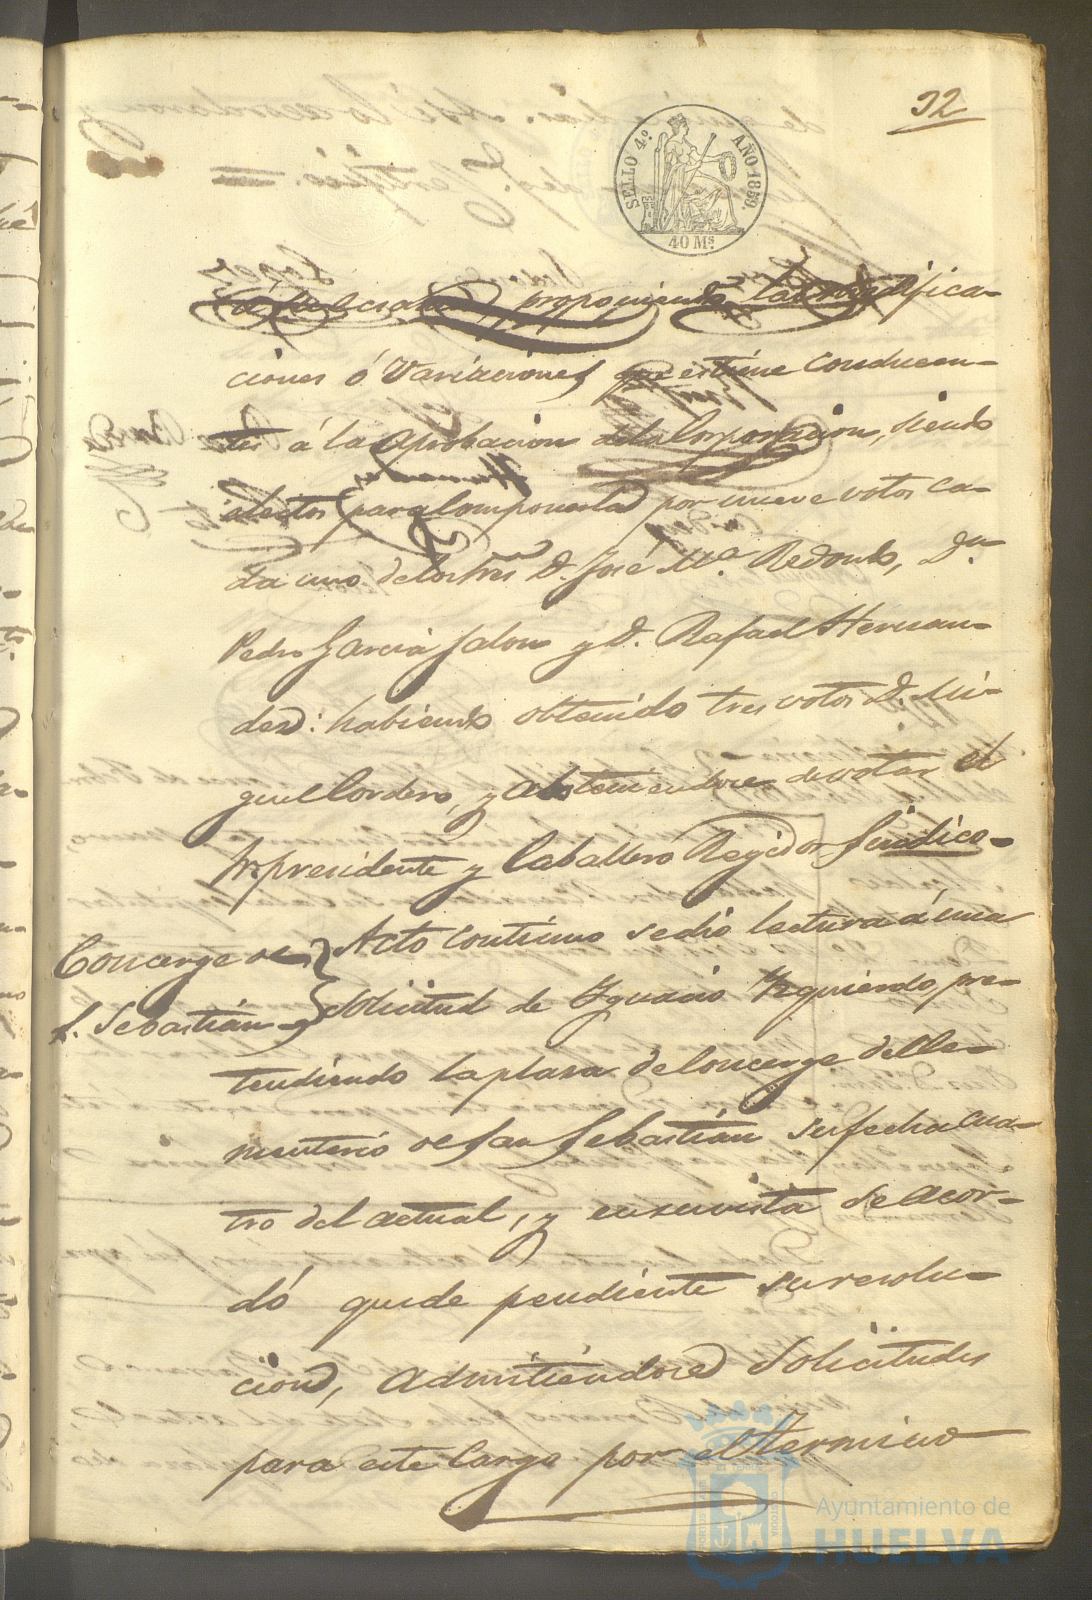 32
SELLO 4º. AÑO 1869.
40 Ms.
proponiendo las modifica-
ciones ó Variaciones que estime conducen-
tes á la aprobacion de la Corporacion, siendo
electos para componerla por nueve votos ca-
da uno de los Sres D. José Mª Redondo, Dn.
Pedro Garcia Jalon y D. Rafael Hernan-
dez: habiendo obtenido tres votos D. Mi-
guel Cordero, y absteniendose de votar el
Sr presidente y Caballero Regidor Sindico-
Concerge de
S. Sebastián
Acto continuo se dió lectura á una
solicitud de Ygnacio Yzquierdo, pre-
tendiendo la plaza de Concerge del Ce-
menterio de San Sebastián su fecha cua-
tro del actual, y en su vista se acor-
dó quede pendiente su resolu-
cion, admitiendose solicitudes
para este Cargo por el termino
Ayuntamiento de
HUELVA